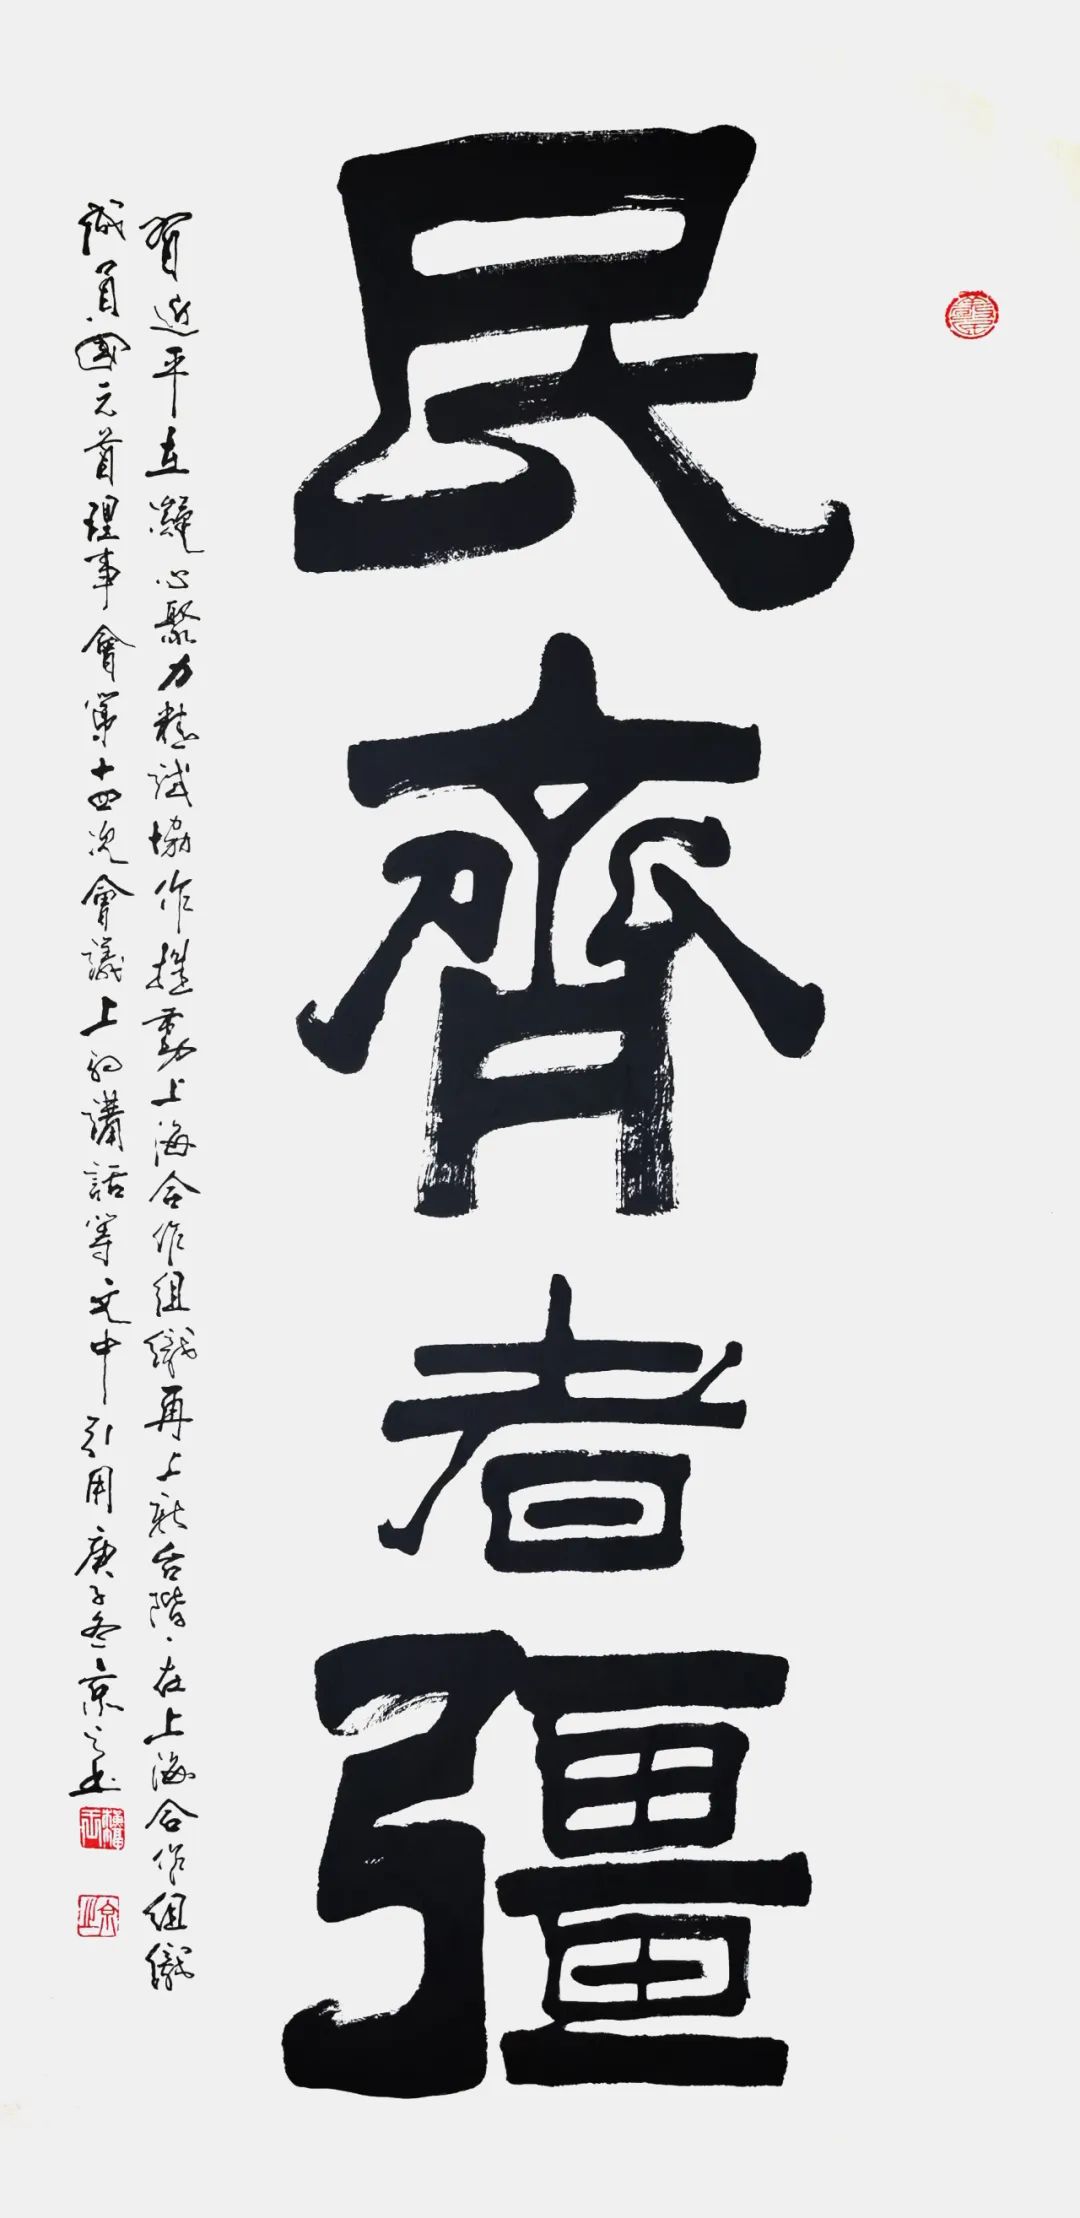 民齊者彊
習近平在凝心聚力精誠協作推動上海合作組織再上新台階·在上海合作組織
成員國元首理事會第十四次會議上的講話等文中引用庚子冬京之書